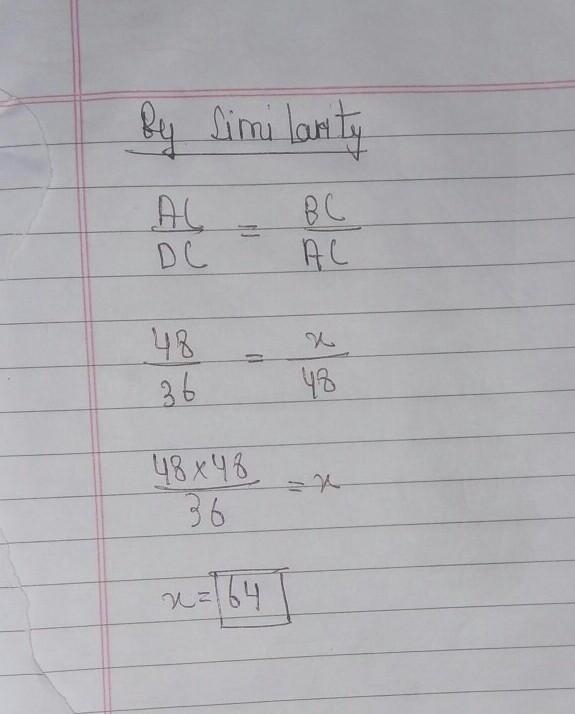 By Similarity
AC/DC = BC/AC
48/36 = x/48
48×48/36 = x
x = 64